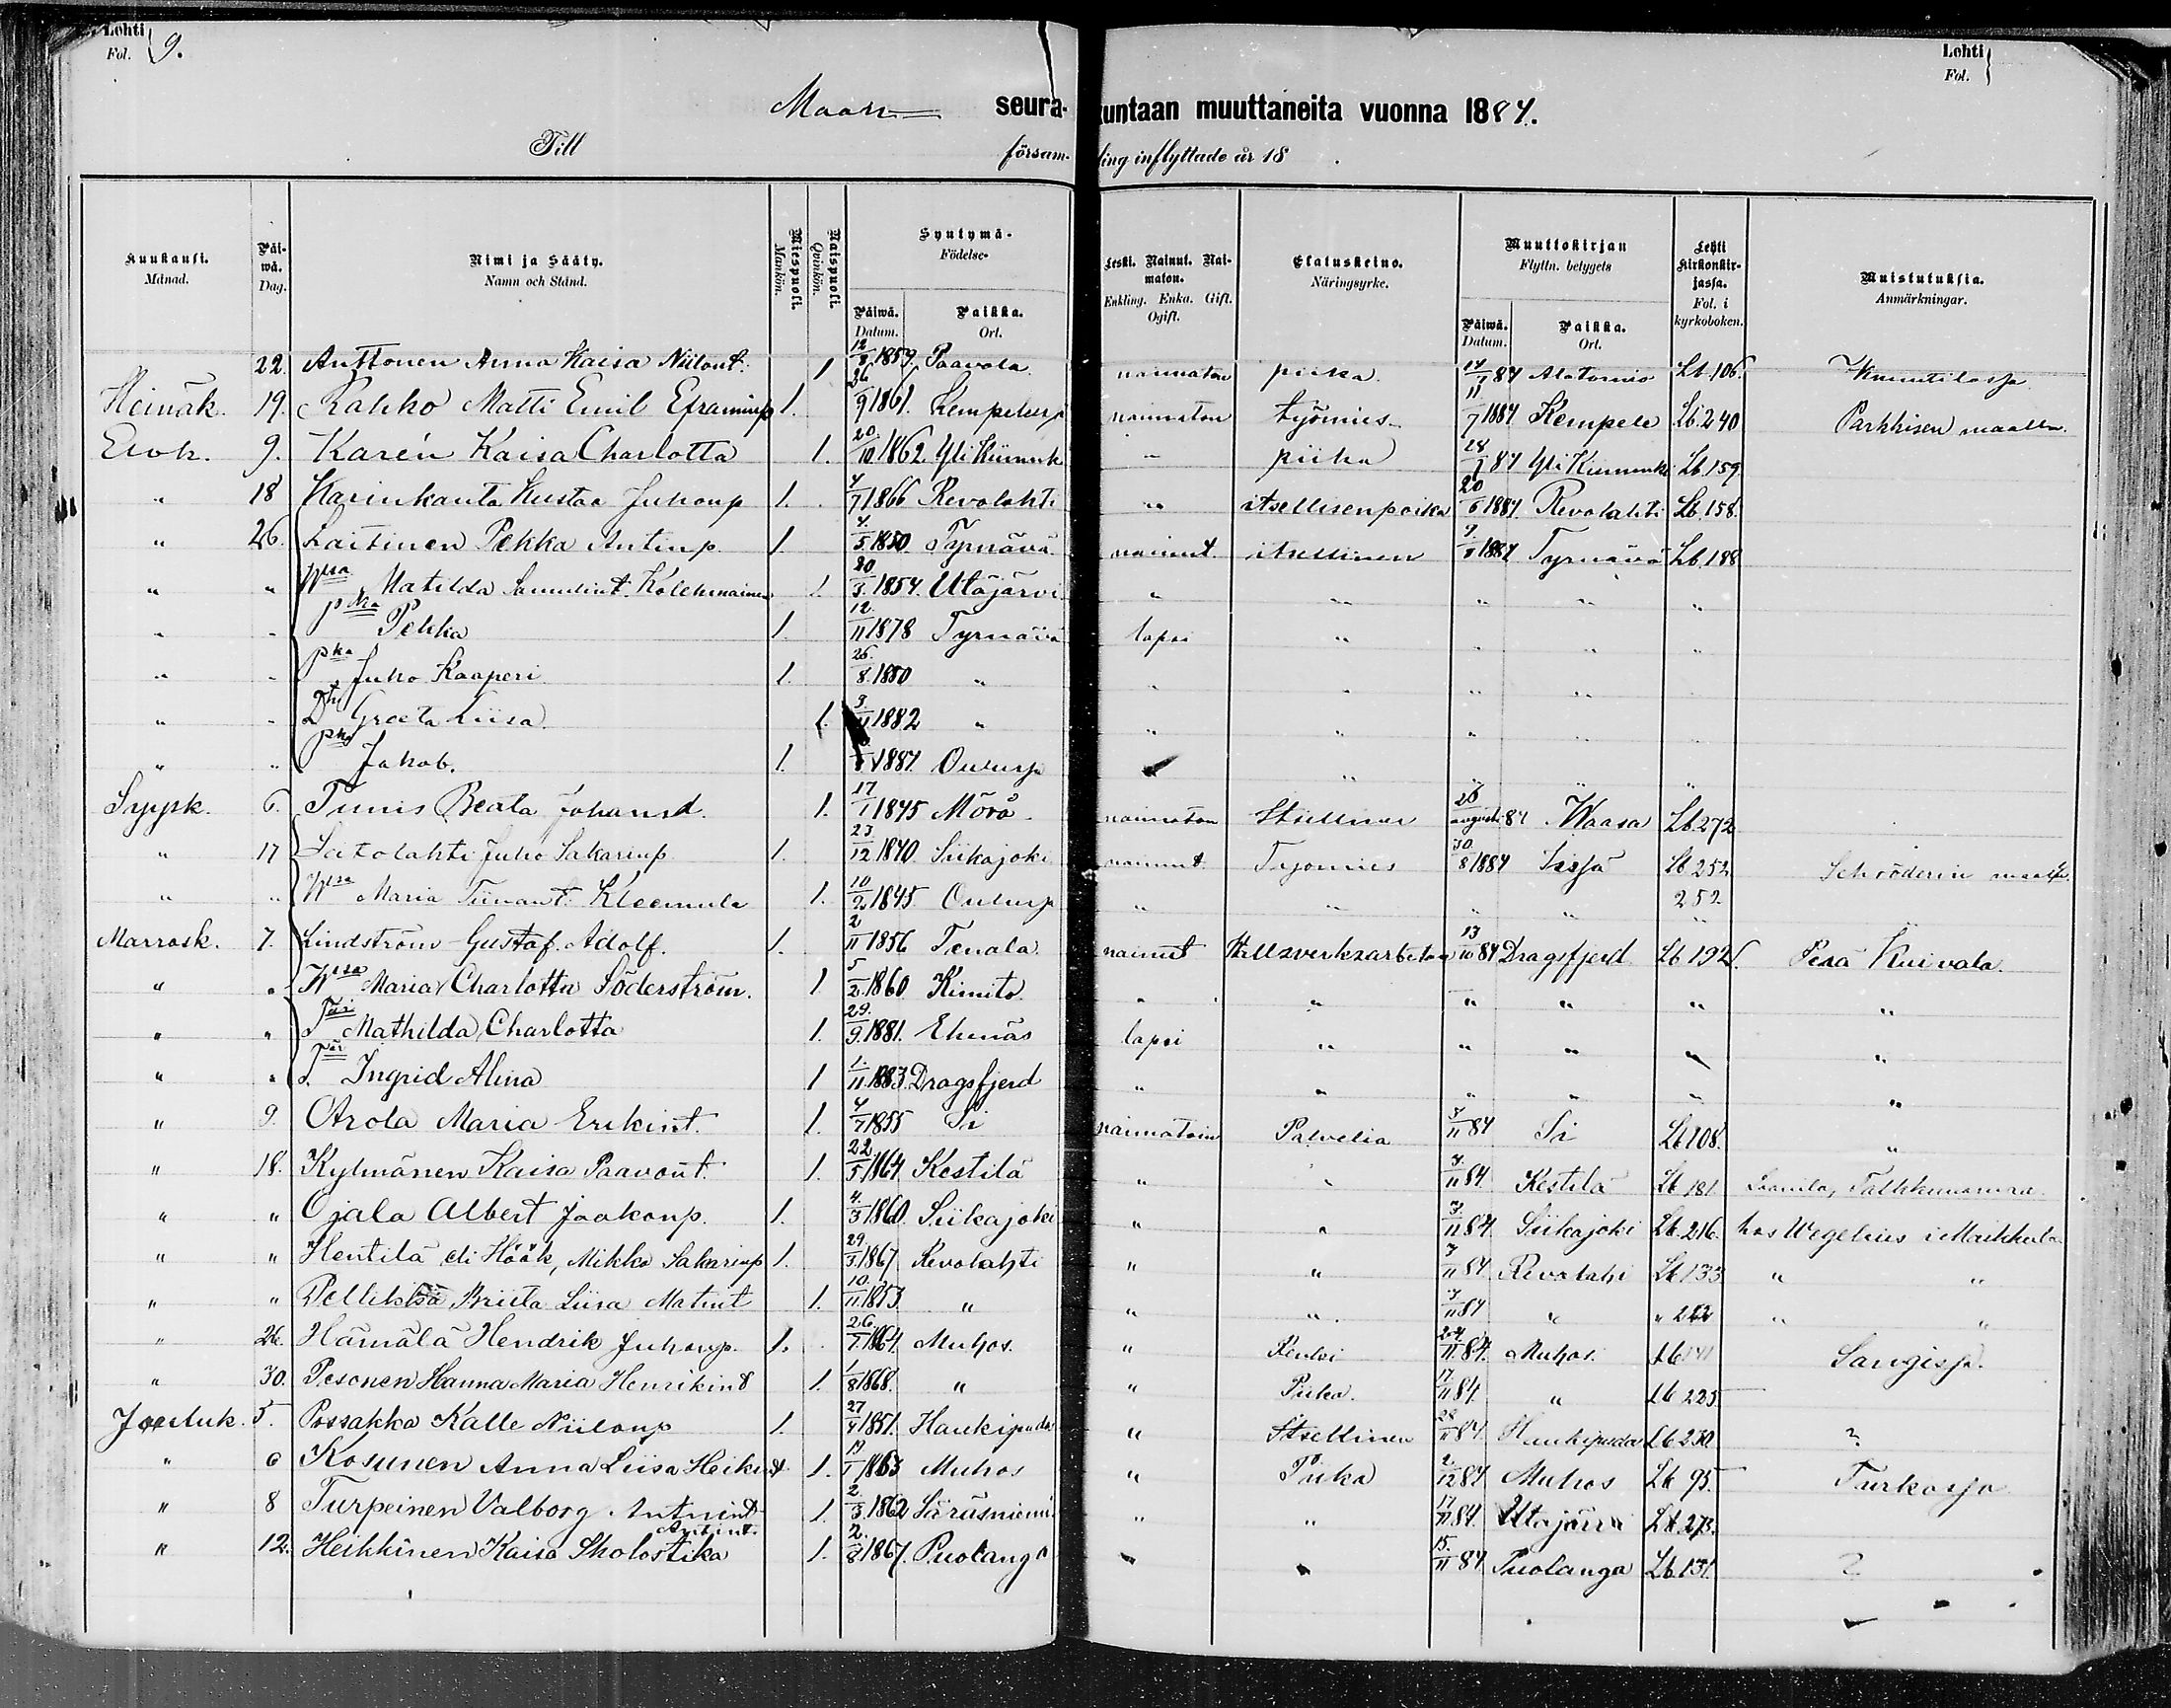 Lehti Fol. } 9.
Lehti Fol. }
Maan seurakuntaan muuttaneita vuonna 1884.
Till församling inflyttade år 18 .
Kuukausi. Månad. | Päiwä. Dag. | Nimi ja Sääty. Namn och Stånd. | Miespuoli. Mankön. | Naispuoli. Qvinkön. | Syntymä- Födelse- Päiwä. Datum. | Paikka. Ort. | Leski. Nainut. Naimaton. Enkling. Enka. Gift. Ogift. | Elatuskeino. Näringsyrke. | Muuttokirjan Flyttn. betygets Päiwä. Datum. | Paikka. Ort. | Lehti kirkonkirjassa. Fol. i kyrkoboken. | Muistutuksia. Anmärkningar.
22. Anttonen Anna Kaisa Niilont. 1 12/8 1859. Paavola naimaton piika 84 Alatornio Lb. 106.
Heinäk. 19. Rahko Matti Emil Eframinp 1. 26/9 1861. Kempelesp naimaton työmies 11/7 1884 Kempele Lb. 240 Parkkisen maalla.
Elok. 9. Karén Kaisa Charlotta 1. 20/10 1862. Yli Kiiminki " piika 28/7 84 Yli Kiiminki Lb. 159.
" 18 Karinkanta Kustaa Juhonp 1. 4/7 1866 Revolahti " itsellisenpoika 20/6 1884. Revolahti Lb. 158.
" 26. Laitinen Pekka Antinp. 1 4./5. 1850. Tyrnävä nainut itsellinen 1884 Tyrnävä Lb. 188
" " Wsa Matilda Kolehmainen 1. 20/3. 1854. Utajärvi " " " " "
" " Pka Pekka 1. 12./11 1878 Tyrnävä lapsi " " " "
" " pka Juho Kaaperi 1. 8. 1880 " " " " " "
" " Greeta Liisa. 1. 1882 " " " " "
" " pka Jakob. 1. 1884. Oulusp " " "
Syysk. 6. Tunis Beata Johansd. 1. 17/1 1845 naimaton 26/augusti 84 Waasa Lb 272
" 17 Juho Sakarinp 1. 23/12 1840 Siikajoki nainut Työmies 30./8 1884 Lb 252 Schröderin
" " Wsa Maria Tiinant. Kleemula 1. 10/2 1845. Oulusp " " " " 252
Marrask. 7. Lindström Gustaf Adolf. 1. 2/11 1856 Tenala nainut 13/10 84 Dragsfjerd Lb 192. Perä Kuivala.
" " Wsa Maria Charlotta Söderström. 1 5/2. 1860 Kimito. " " " " " "
" " Mathilda Charlotta 1. 29./9. 1881. Ekenäs lapsi " " " " "
" " Ingrid Alina 1 1./11. 1883. Dragsfjerd " " " " " "
" 9. Arola Maria Erikint. 1. 4/7 1855 Ii naimatoin Palvelia 3/11 84 Ii Lb 108. "
" 18. Kylmänen Kaisa Paavont. 1. 22/5 1864 Kestilä " " 3/11 84. Kestilä Lb 181
" " Ojala Albert Jaakonp. 1. 4./3 1860. Siikajoki " " 3/11 84. Siikajoki Lb. 216. hos Wegelius i Maikkula
" " Hentilä eli Höök, Mikko Sakarinp 1. 29./3. 1867 Revolahti " " 3/11 84 Revolahi Lb 133 " "
" " Brieta Liisa Matint 1. 10./11. 1853 " " " 3/11 84 " " " "
" 26. Hämälä Hendrik Juhonp. 1. 26./7. 1864. Muhos. " Renki 24./11. 84. Muhos. Lb Sangisp.
" 30. Pesonen Hanna Maria Henrikint 1. 1/8 1868. " " Piika. 17./11 84. " Lb 225
Jouluk. 5. Possakka Kalle Niilonp 1. 27/4 1851. Haukipudas " Itsellinen 28/11 84. Haukipudas Lb 230. ?
" 6 Kosunen Anna Liisa Heikint 1. 19/1 1863 Muhos " Piika 2/12 84 Muhos Lb 95. Turkasp
" 8 Turpeinen Valborg Antnint 1. 2./3. 1862 Säräsniemi " " 17/11 84. Utajärvi Lb. 273.
" 12. Heikkinen Kaisa Skolostika Antint. 1. 2./2 1867. Puolanga " " 15./11 84 Puolanga Lb. 131. ?